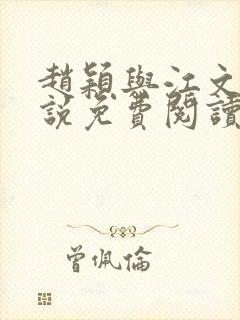 趙穎與江文
說免費閱讀
曾佩倫